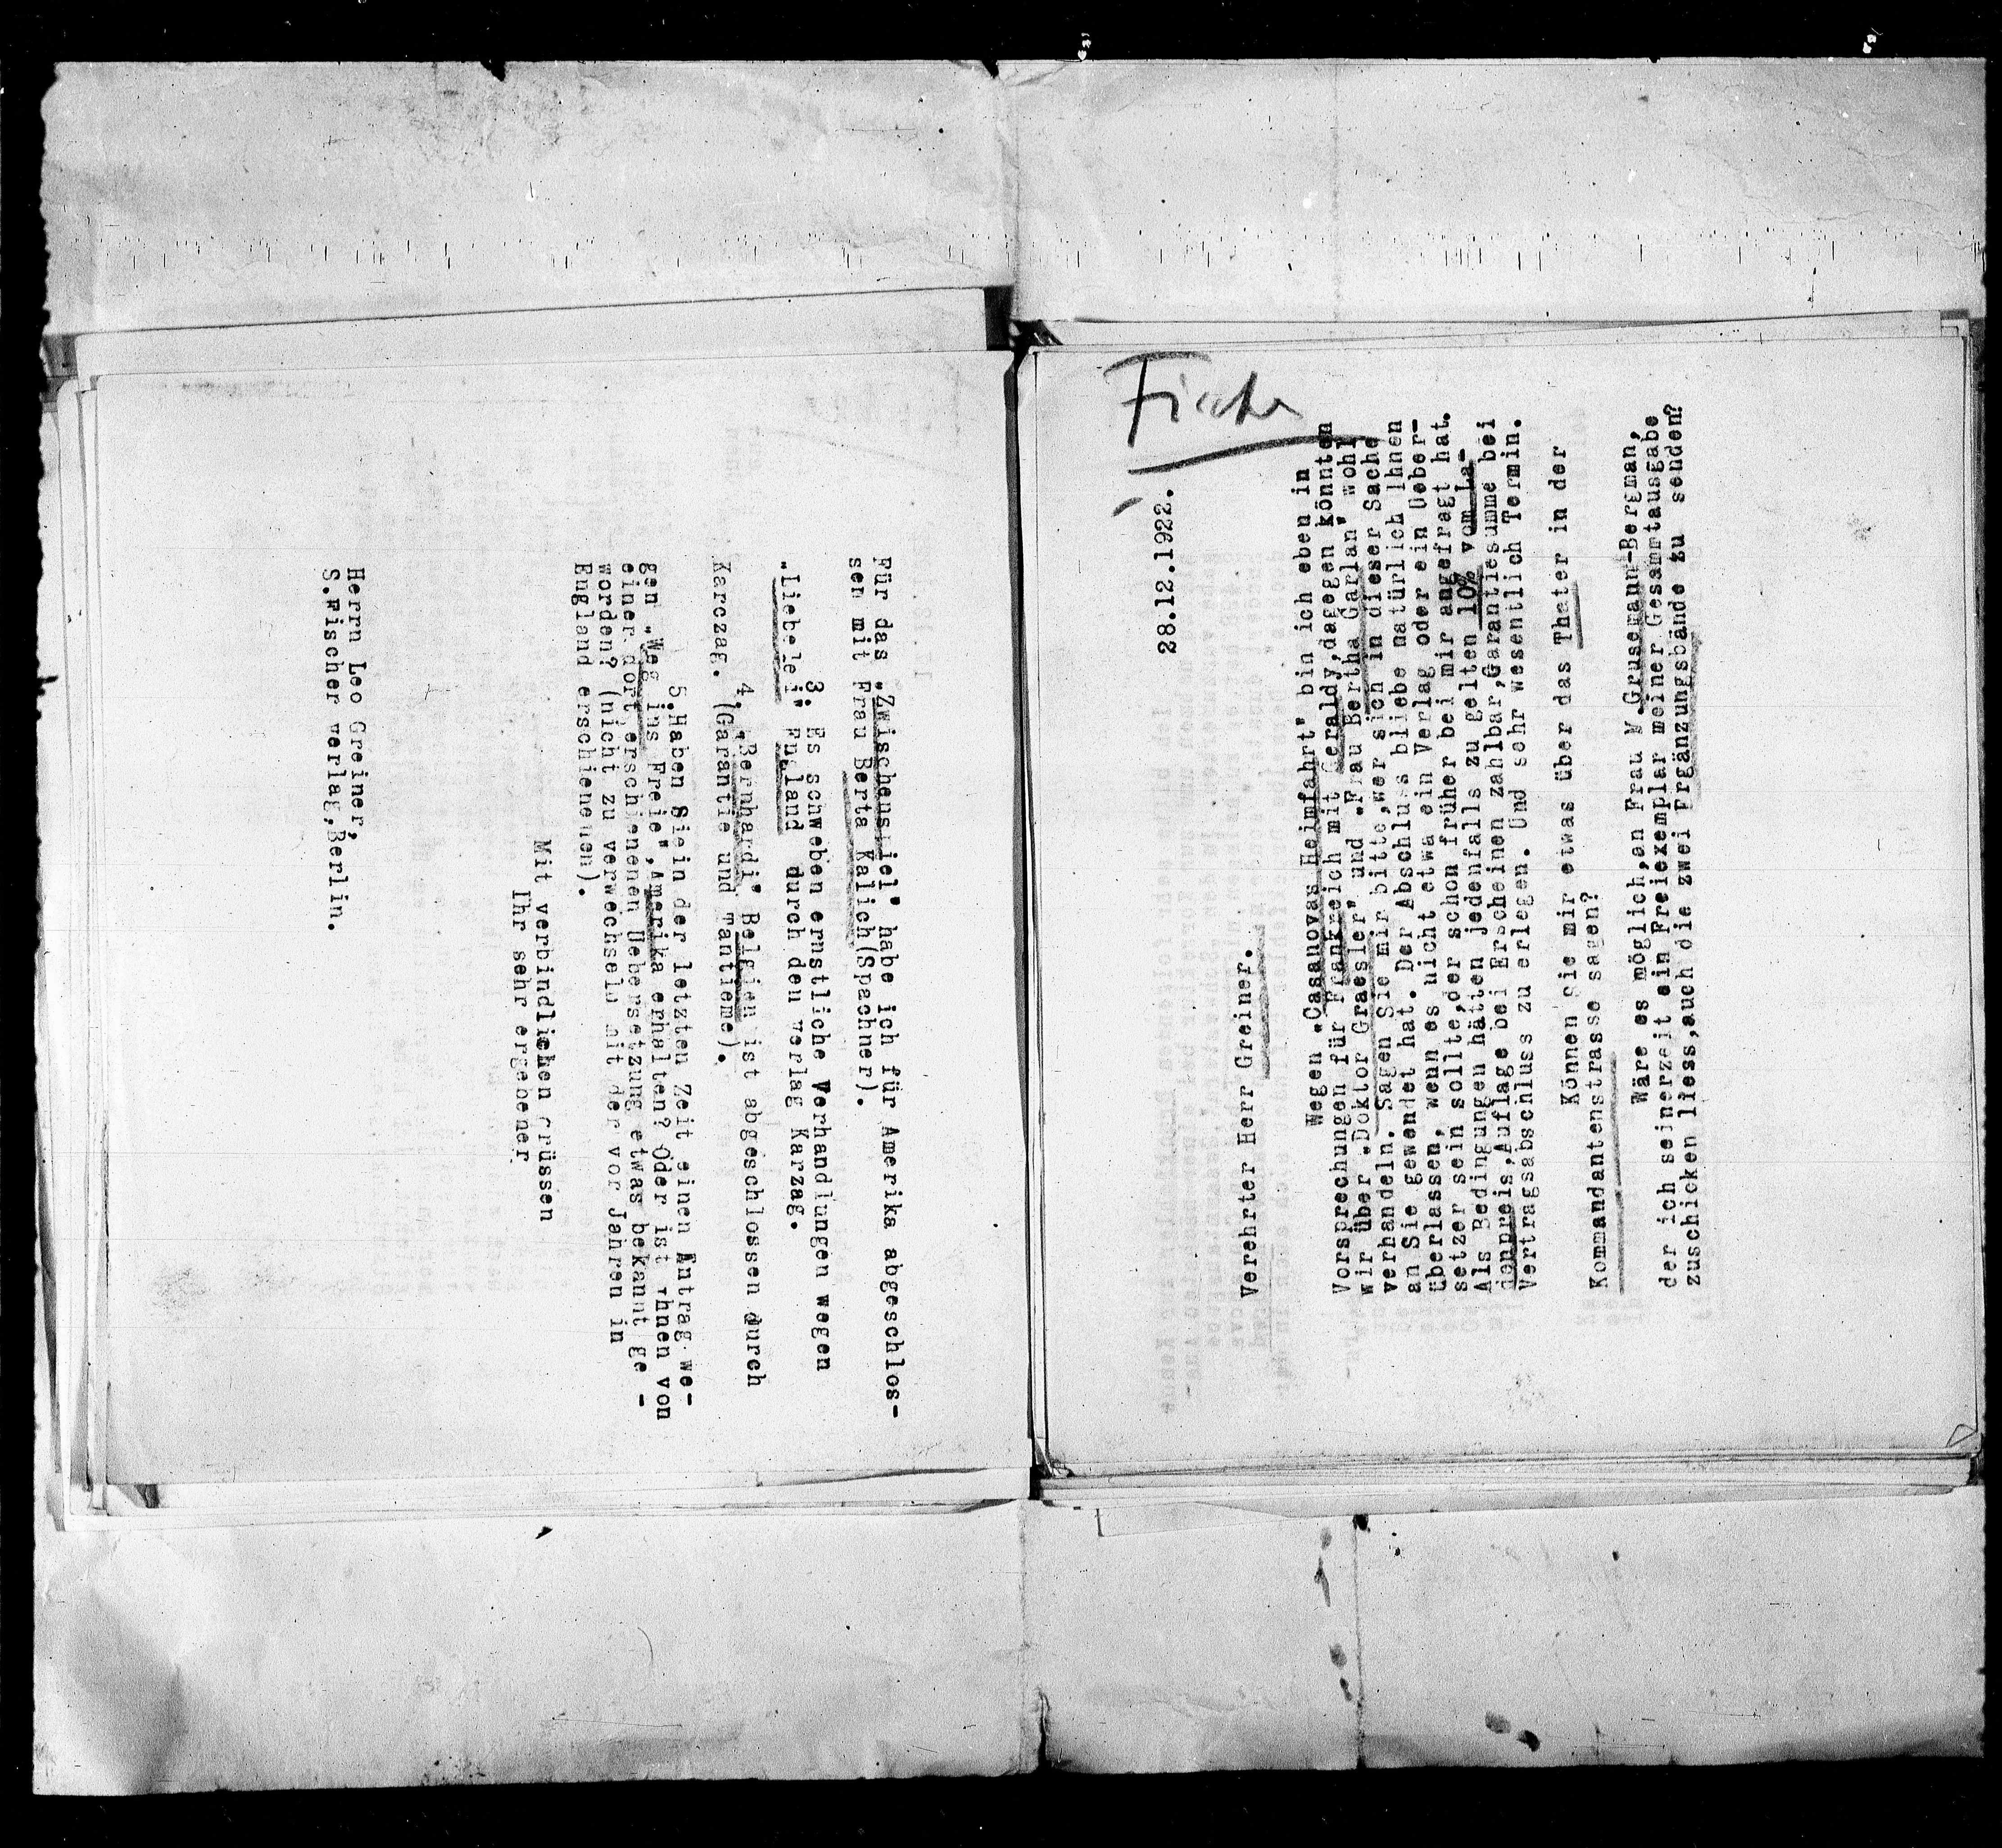 Für das „Zwischenspiel" habe ich für Amerika abgeschlos-
sen mit Frau Berta Kalich(Spachner).
3. Es schweben ernstliche Verhandlungen wegen
„Liebelei" England durch den Verlag Karzag.
4. „Bernhardi" Belgien ist abgeschlossen durch
Karczag. (Garantie und Tantieme).
5.Haben Siein der letzten Zeit einen Antrag we-
gen „Weg ins Freie",Amerika erhalten? Oder ist Ihnen von
einer dort erschienenen Uebersetzung etwas bekannt ge -
worden? (nicht zu verwechseln mit der vor Jahren in
England erschienenen).
Mit verbindlichen Grüssen
Ihr sehr ergebener
Herrn Leo Greiner,
S.Fischer Verlag,Berlin.
Fischer
28.12.1922.
Verehrter Herr Greiner.
Wegen „Casanovas Heimfahrt" bin ich eben in
Vorsprechungen für Frankreich mit Geraldy,dagegen könnten
wir über „Doktor Graesler" und „Frau Bertha Garlan" wohl
verhandeln. Sagen Sie mir bitte,wer sich in dieser Sache
an Sie gewendet hat. Der Abschluss bliebe natürlich Ihnen
überlassen, wenn es nicht etwa ein Verlag oder ein Ueber-
setzer sein sollte,der schon früher bei mir angefragt hat.
Als Bedingungen hätten jedenfalls zu gelten 10% vom La-
denpreis,Auflage bei Erscheinen zahlbar,Garantiesumme bei
Vertragsabschluss zu erlegen. Und sehr wesentlich Termin.
Können Sie mir etwas über das Thater in der
Kommandantenstrasse sagen?
Wäre es möglich,an Frau M.Grusemann-Bergman,
der ich seinerzeit ein Freiexemplar meiner Gesammtausgabe
zuschicken liess,auch die zwei Ergänzungsbände zu senden?